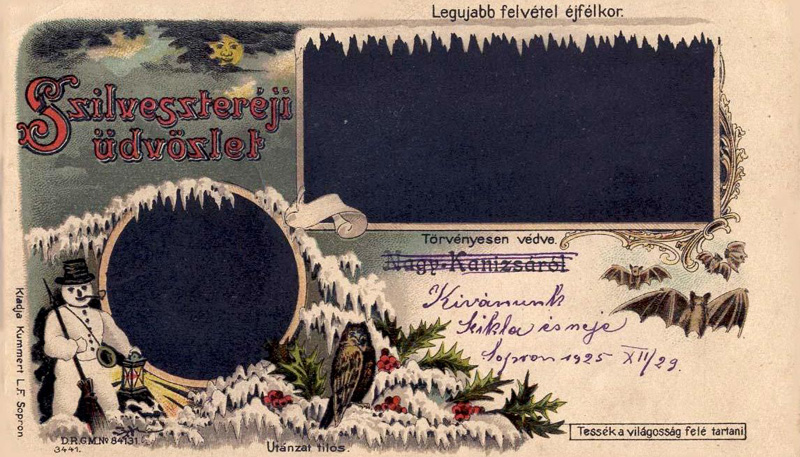 Legujabb felvétel éjfélkor.
Szilveszteréji
üdvözlet
Törvényesen védve.
Nagy-Kanizsáról
Kivánunk
Sikla és neje
Sopron 1925 XII/29.
Kiadja Kummert L.F. Sopron.
D.R.G.M. No 84131.
3441.
Utánzat tilos.
Tessék a világosság felé tartani